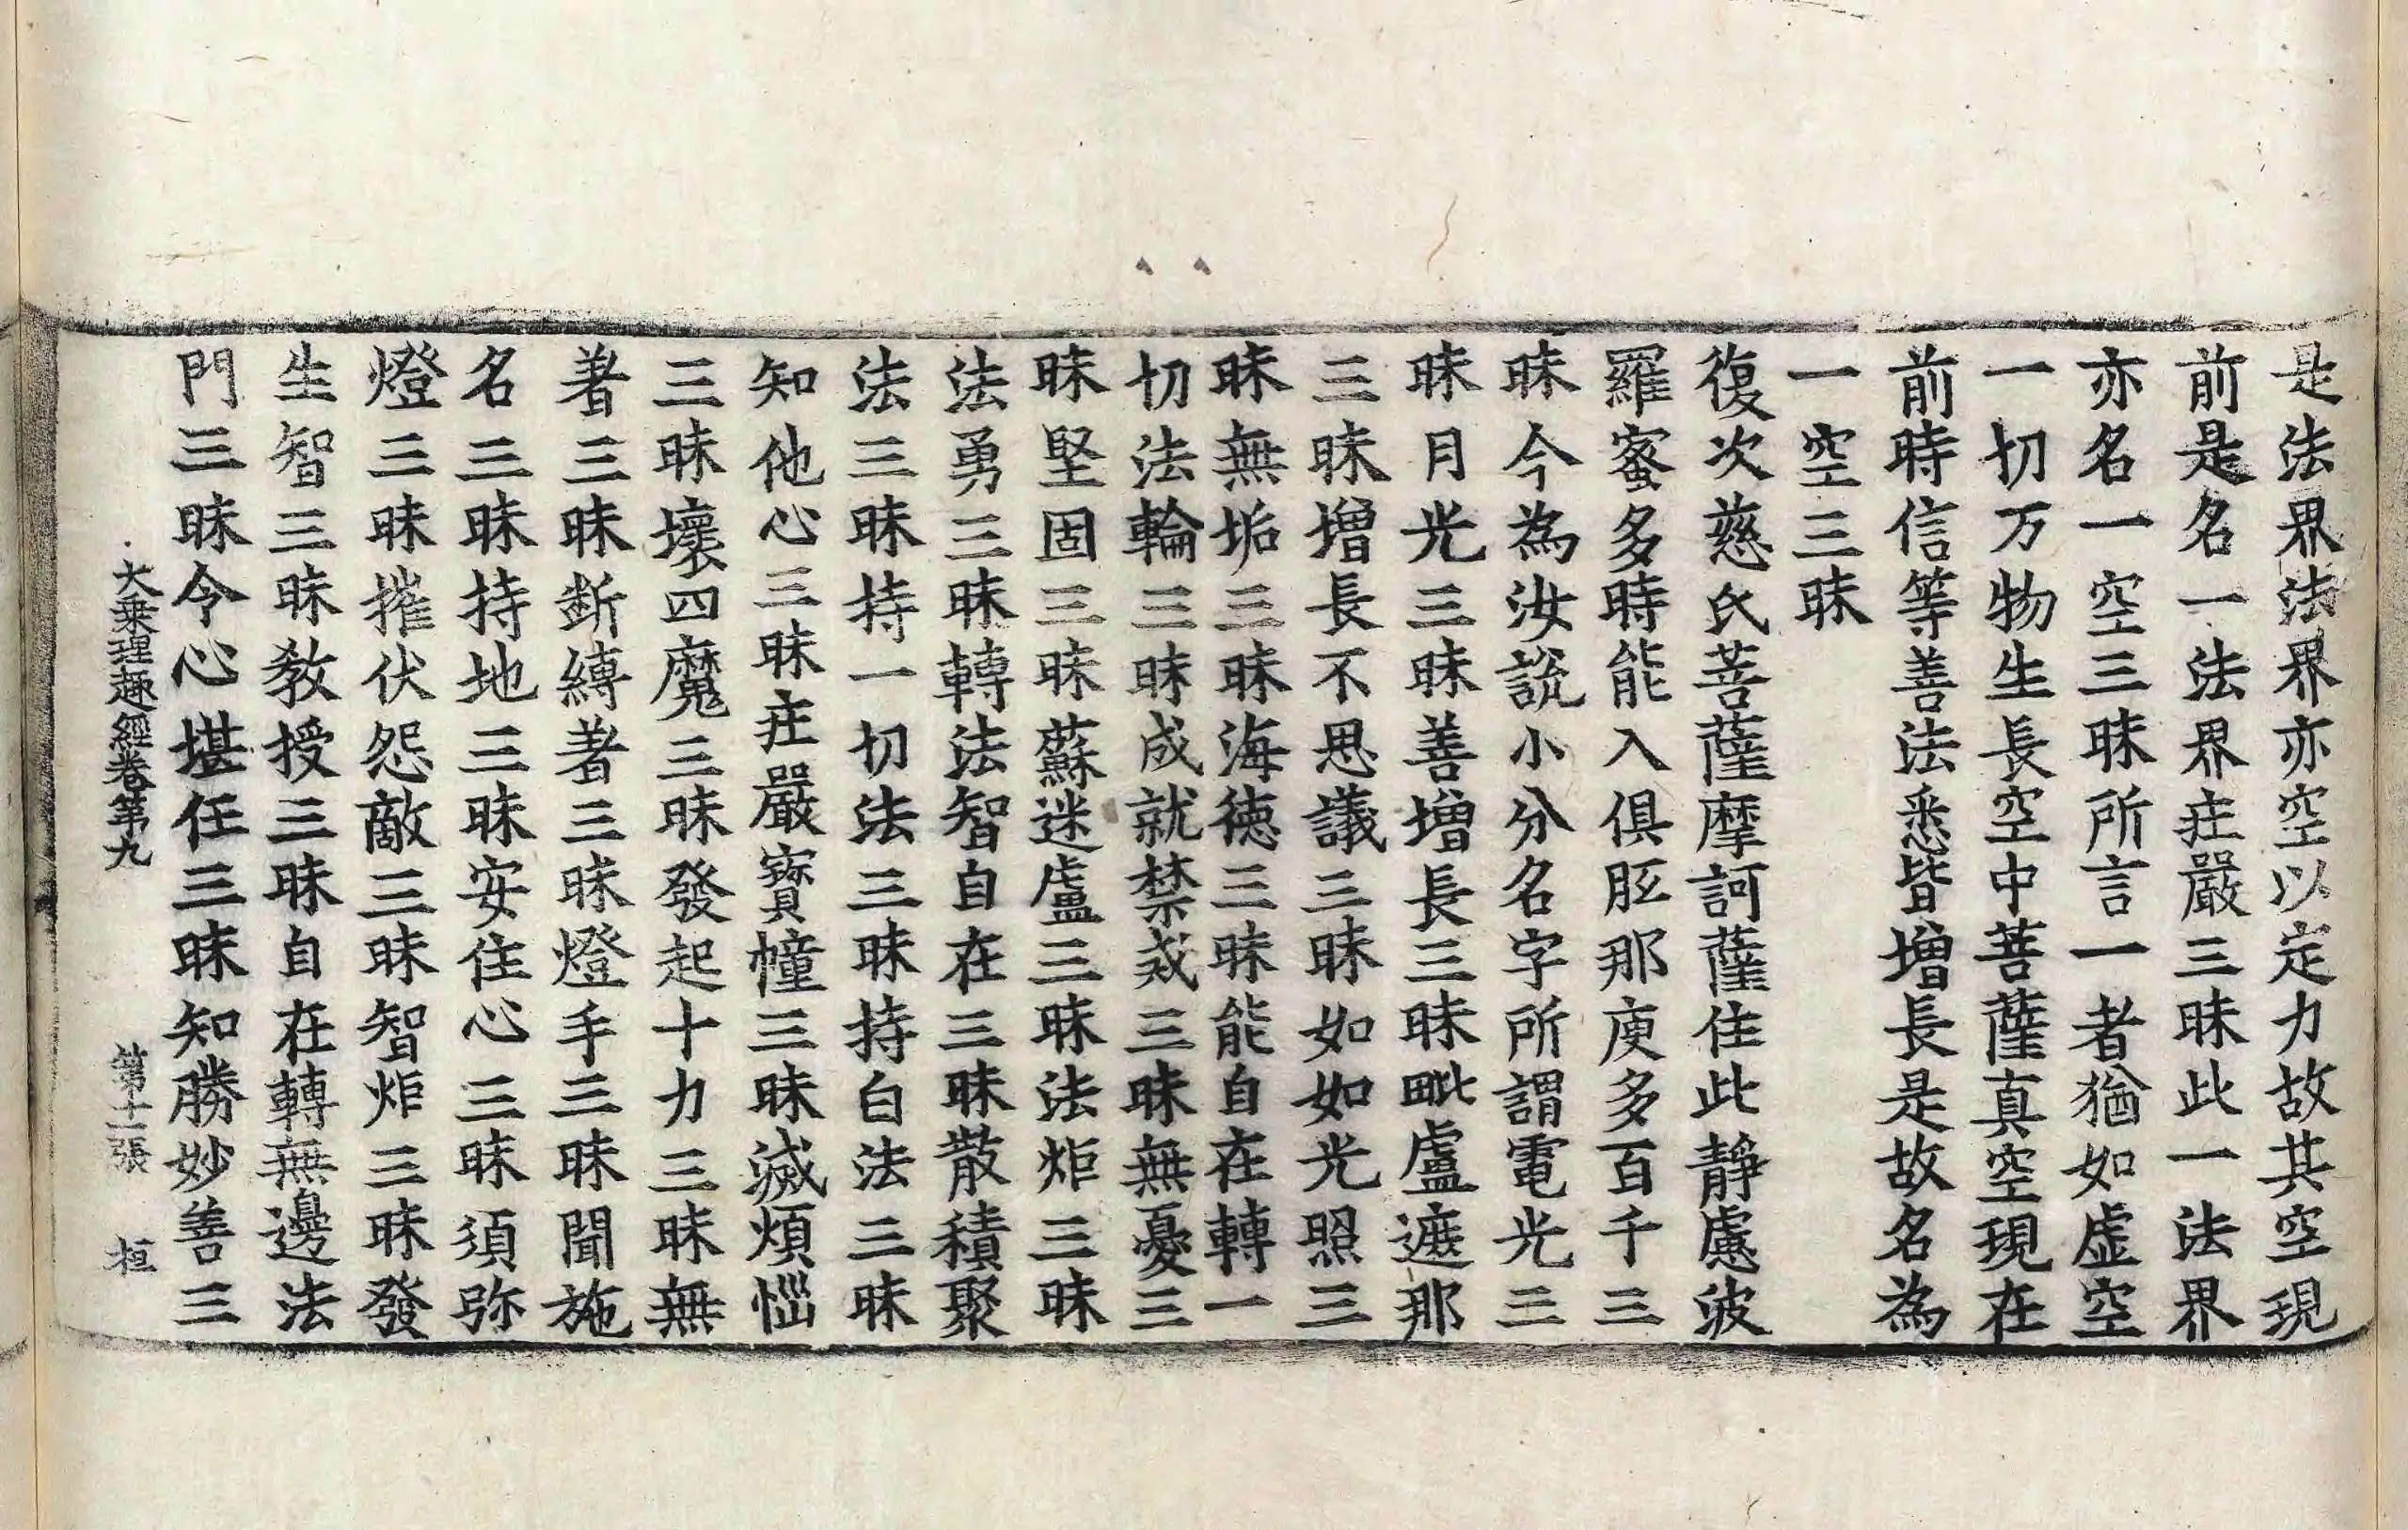 是法界法界亦空以定力故其空現
前是名一法界庄嚴三昧此一法界
亦名一空三昧所言一者猶如虛空
一切万物生長空中菩薩真空現在
前時信等善法悉皆增長是故名為
一空三昧
復次慈氏菩薩摩訶薩住此靜慮波
羅蜜多時能入俱胝那庾多百千三
昧今為汝說小分名字所謂電光三
昧月光三昧善增長三昧毗盧遮那
三昧增長不思議三昧如如光照三
昧無垢三昧海德三昧能自在轉一
切法輪三昧成就禁戒三昧無憂三
昧堅固三昧蘇迷盧三昧法炬三昧
法勇三昧轉法智自在三昧散積聚
法三昧持一切法三昧持白法三昧
知他心三昧庄嚴寶幢三昧滅煩惱
三昧壞四魔三昧發起十力三昧無
著三昧斷縛著三昧燈手三昧聞施
名三昧持地三昧安住心三昧須弥
燈三昧摧伏怨敵三昧智炬三昧發
生智三昧教授三昧自在轉無邊法
門三昧令心堪任三昧知勝妙善三
大乗理趣經卷第九 第十二張 桓